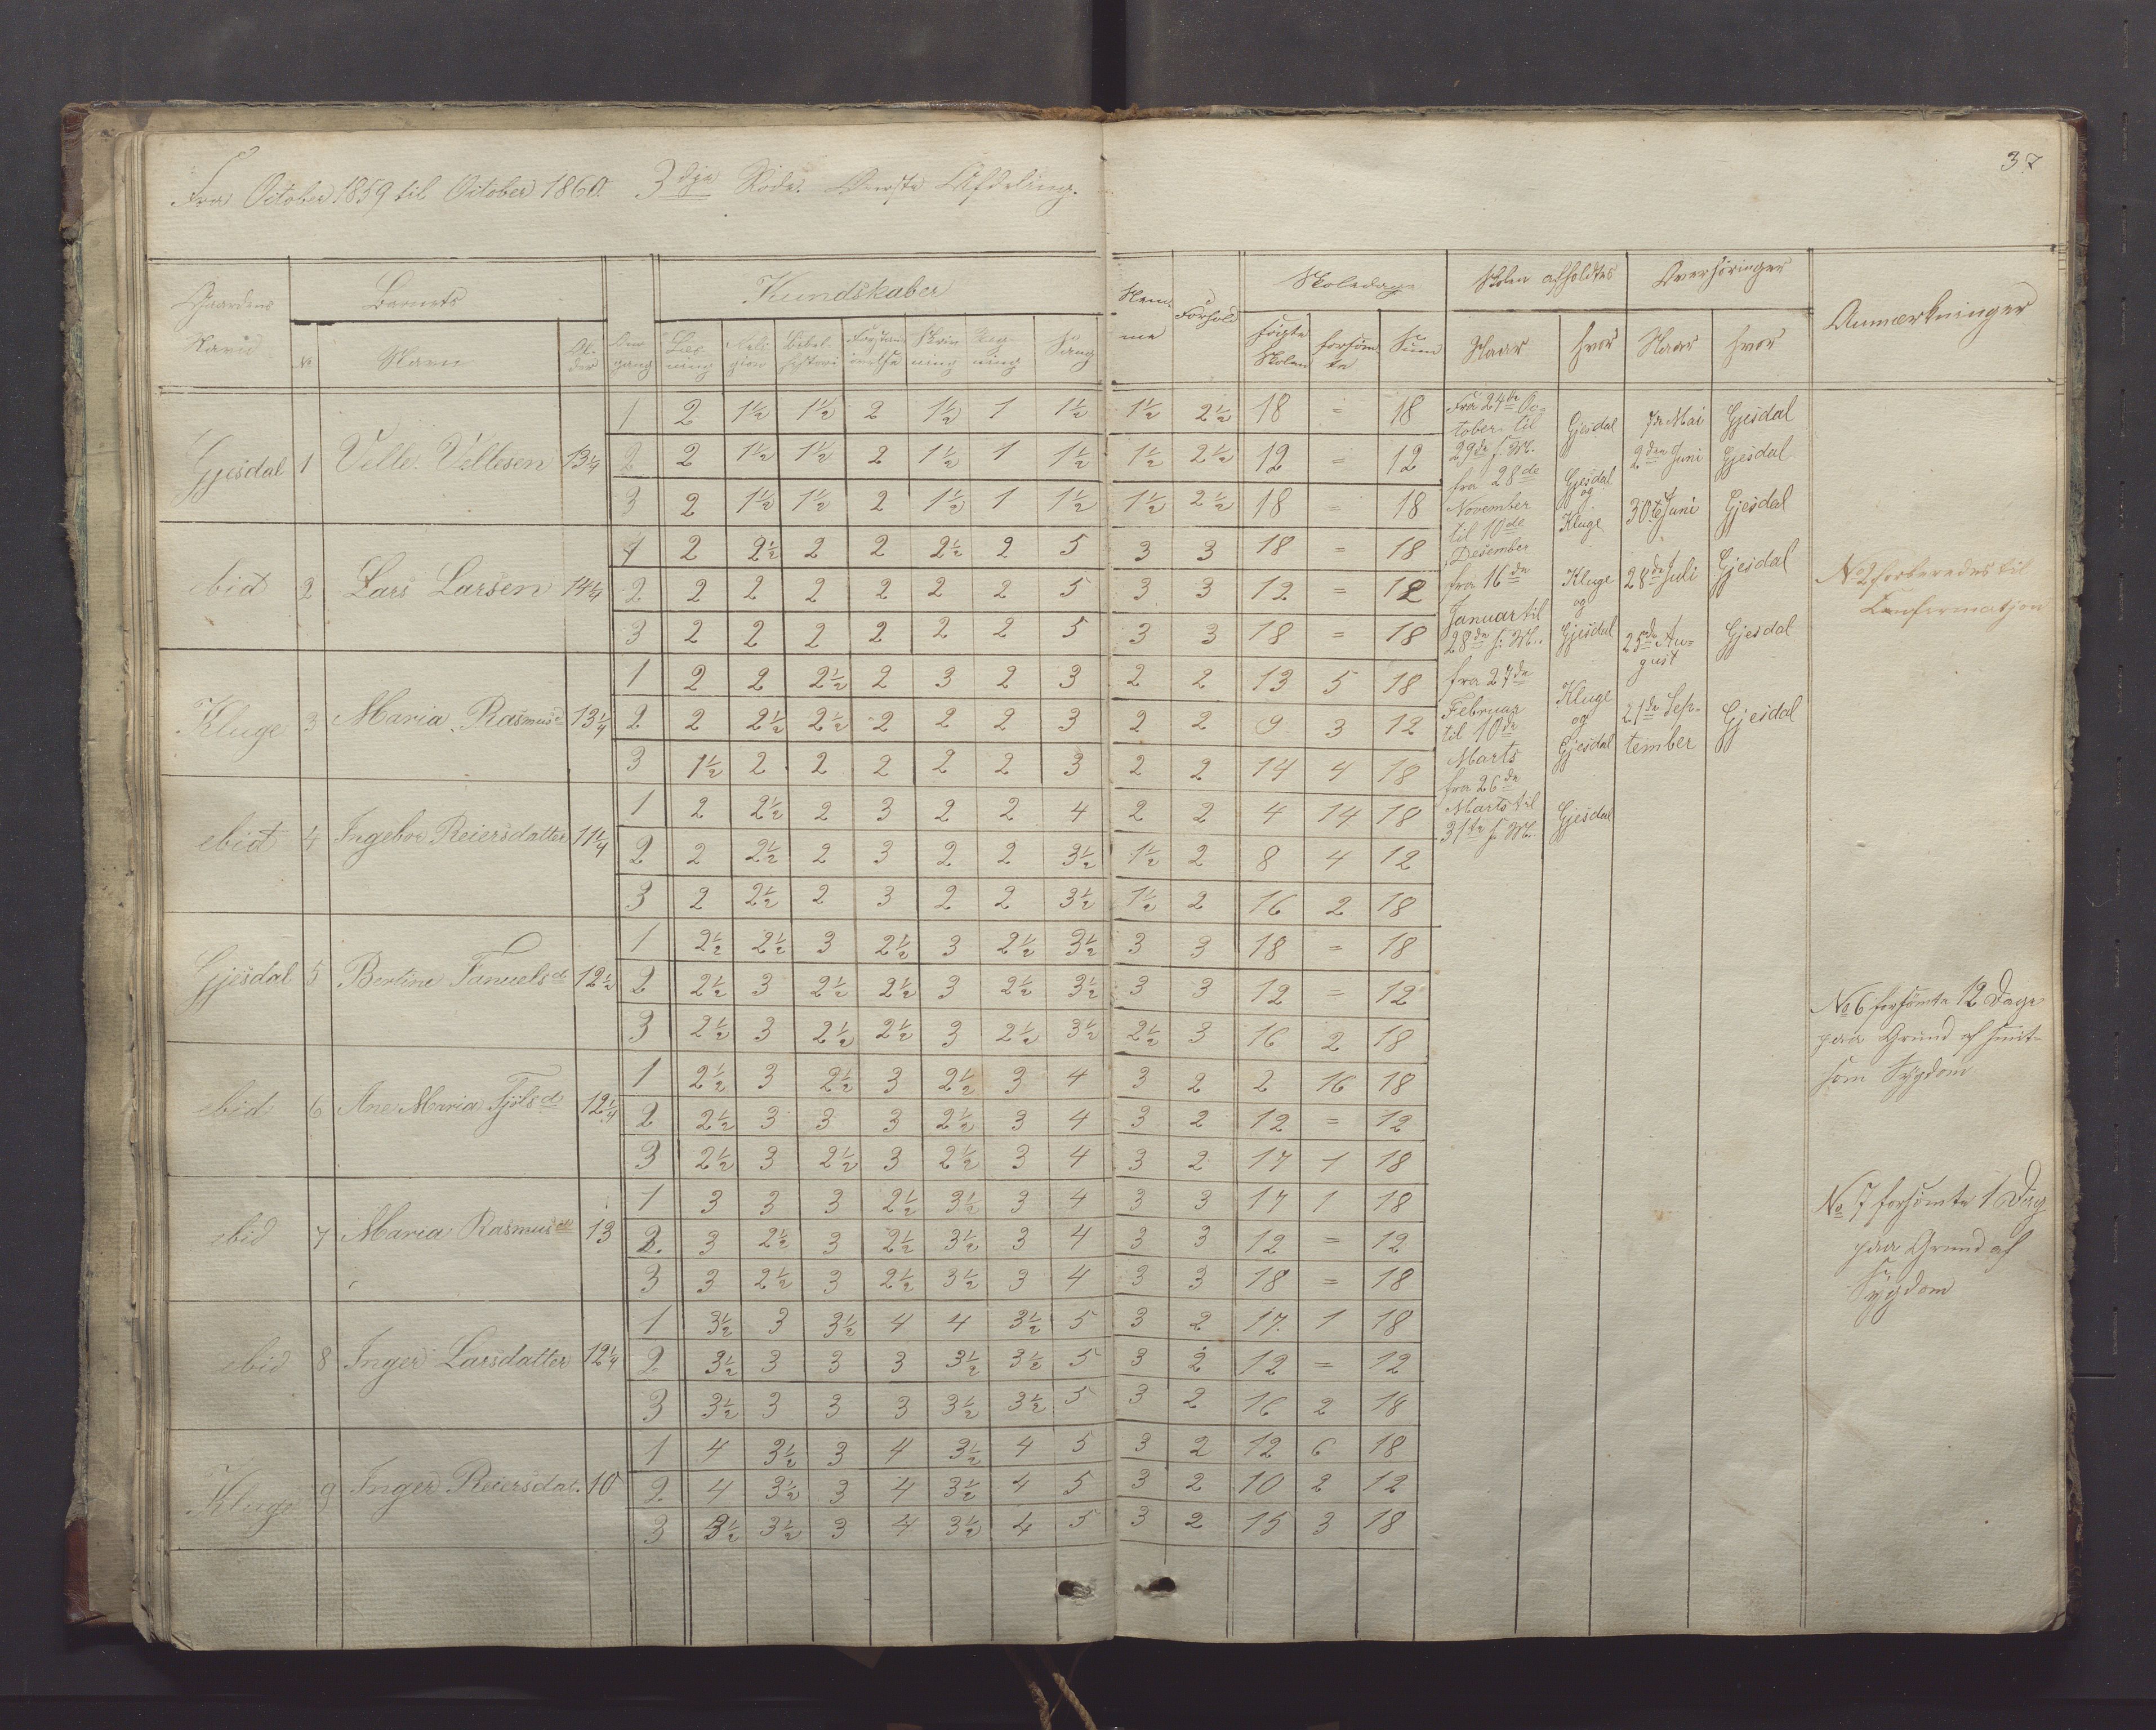 37
Fra October 1859 til October 1860. 3dje Rode. Øverste Afdeling.
Gaardens Navn | Barnets | Om-gang | Kundskaber | Nem-me | Forhold | Skoledage | Skolen afholdtes | Overhöringer | Anmærkninger
№ | Navn | Al-der | Læs-ning | Reli-gion | Bibel-historie | Skriv-ning | Reg-ning | Sang | søgte Skolen | forsöm-te | Sum | Naar | hvor | Naar | hvor
Gjesdal 1 Velle Vellesen 13¼
1 2 1½ 1½ 2 1½ 1 1½ 1½ 2½ 18 = 18
2 2 1½ 1½ 2 1½ 1 1½ 1½ 2½ 12 = 12
3 2 1½ 1½ 2 1½ 1 1½ 1½ 2½ 18 = 18
ebid 2 Lars Larsen 14¼
1 2 2½ 2 2 2½ 2 5 3 3 18 = 18
2 2 2 2 2 2 2 5 3 3 12 = 12
3 2 2 2 2 2 2 5 3 3 18 = 18
Kluge 3 Maria Rasmusd 13¼
1 2 2 2½ 2 3 2 3 2 2 13 5 18
2 2 2½ 2½ 2 2 2 3 2 2 9 3 12
3 1½ 2 2 2 2 2 3 2 2 14 4 18
ebid 4 Ingebor Reiersdatter 11¼
1 2 2½ 2 3 2 2 4 2 2 4 14 18
2 2 2½ 2 3 2 2 3½ 1½ 2 8 4 12
3 2 2½ 2 3 2 2 3½ 1½ 2 16 2 18
Gjesdal 5 Bertine Tanuelsd 12½
1 2½ 2½ 3 2½ 3 2½ 3½ 3 3 18 = 18
2 2½ 3 2½ 2½ 3 2½ 3½ 3 3 12 = 12
3 2½ 3 2½ 2½ 3 2½ 3½ 2½ 3 16 2 18
ebid 6 Ane Maria Tjölsd 12¼
1 2½ 3 2½ 3 2½ 3 4 3 2 2 16 18
2 2½ 3 3 3 2½ 3 4 3 2 12 = 12
3 2½ 3 2½ 3 2½ 3 4 3 2 17 1 18
ebid 7 Maria Rasmusd 13
1 3 3 3 2½ 3½ 3 4 3 3 17 1 18
2 3 2½ 3 2½ 3½ 3 4 3 3 12 = 12
3 3 2½ 3 2½ 3½ 3 4 3 3 18 = 18
ebid 8 Inger Larsdatter 12¼
1 3½ 3 3½ 4 4 3½ 5 3 2 17. 1 18
2 3½ 3 3 3 3½ 3½ 5 3 2 12 = 12
3 3½ 3 3 3 3½ 3½ 5 3 2 16 2 18
Kluge 9 Inger Reiersdat. 10
1 4 3½ 3 4 3½ 4 5 3 2 12 6 18
2 4 3½ 3 4 3½ 4 5 3 2 10 2 12
3 3½ 3½ 3 4 3½ 4 5 3 2 15 3 18
Fra 24de Oc-
tober til
29de s. M.
fra 28de
November
til 10de
Desember
fra 16de
Januar til
28de s. M.
fra 27de
Februar
til 10de
Marts
fra 26de
Marts til
31te s. M.
Gjesdal
Gjesdal
og
Kluge
Kluge
og
Gjesdal
Kluge
og
Gjesdal
Gjesdal
7de Mai Gjesdal
2den Juni Gjesdal
30te Juni Gjesdal
28de Juli Gjesdal
25de Au-
gust Gjesdal
21de Sep-
tember Gjesdal
№ 2 forberedes til
Confirmasjon
№ 6 forsömte 12 Dage
paa Grund af smit-
som Sygdom
№ 7 forsömte 1 Dag
paa Grund af
Sygdom